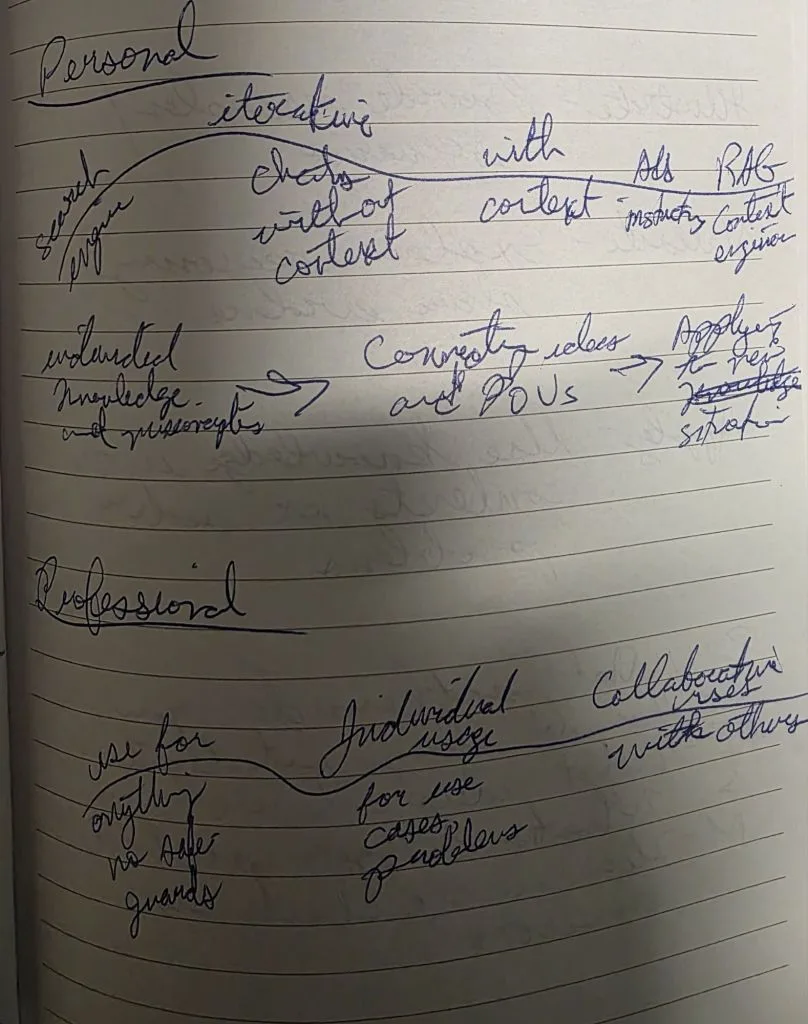 Personal
search
engine
iterative
chats
without
context
with
context
Add
RAG
Context
knowledge
and
Connecting ideas
and POVs
Applying
to new
knowledge
situation
Professional
use for
anything
no safe
guards
Individual
usage
for use
cases,
problems
Collaborative
uses
with others